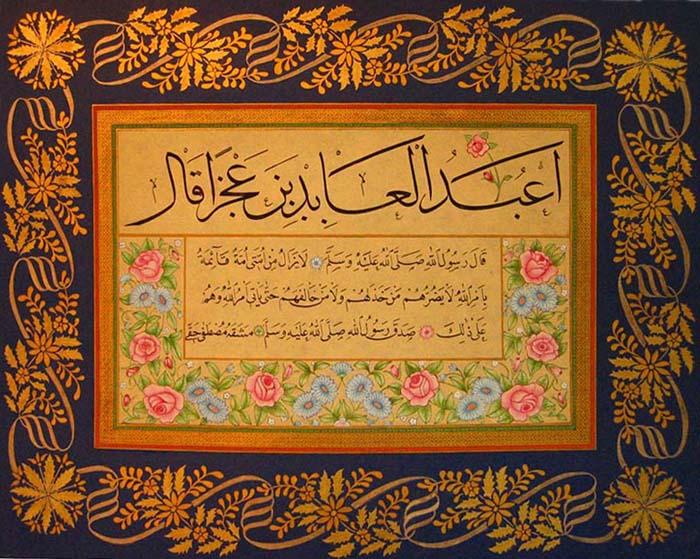 اَعْبَدُ الْعَابِدِينَ عَجْزًا قَالَ
قَالَ رَسُولُ اللّٰهِ صَلَّى اللّٰهُ عَلَيْهِ وَسَلَّمَ لَا تَزَالُ مِنْ اُمَّتِى اُمَّةٌ قَائِمَةٌ
بِاَمْرِ اللّٰهِ لَا يَضُرُّهُمْ مَنْ خَذَلَهُمْ وَلَا مَنْ خَالَفَهُمْ حَتّٰى يَاْتِىَ اَمْرُ اللّٰهِ وَهُمْ
عَلٰى ذٰلِكَ صَدَقَ رَسُولُ اللّٰهِ صَلَّى اللّٰهُ عَلَيْهِ وَسَلَّمَ مشقه مصطفى حقى